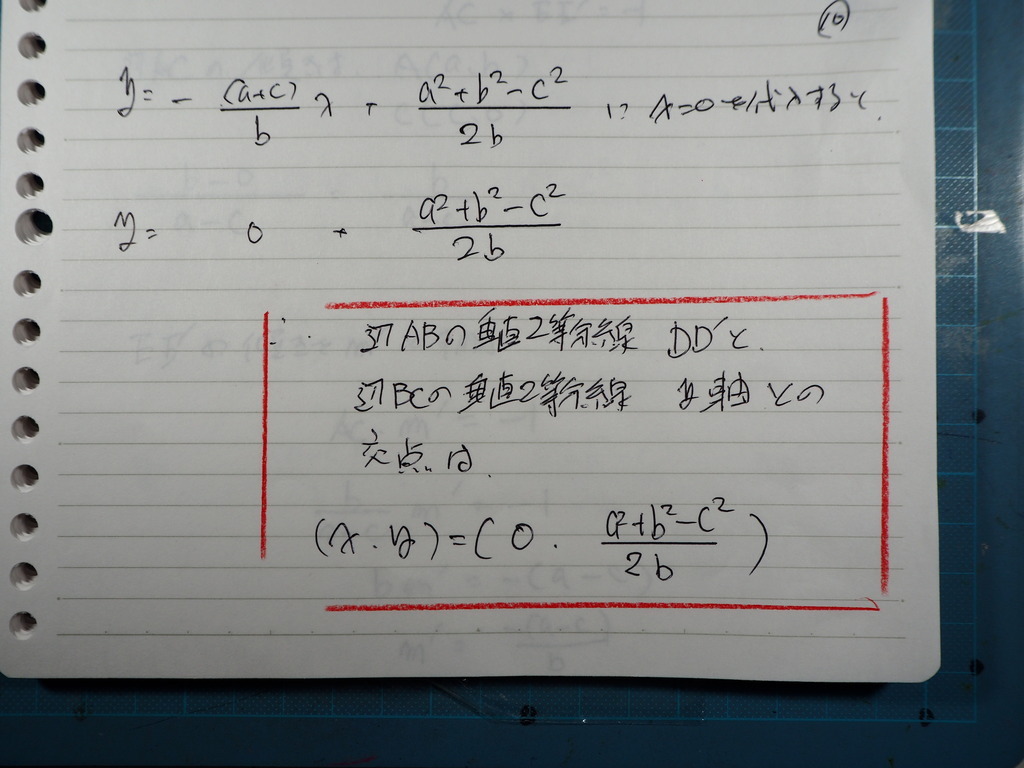 ⑩
y = - (a+c)/b x + (a²+b²-c²)/2b に x=0を代入すると、
y = 0 + (a²+b²-c²)/2b
∴ 辺ABの垂直2等分線 DD'と、
辺BCの垂直2等分線 y軸との
交点は、
(x, y) = (0, (a²+b²-c²)/2b)